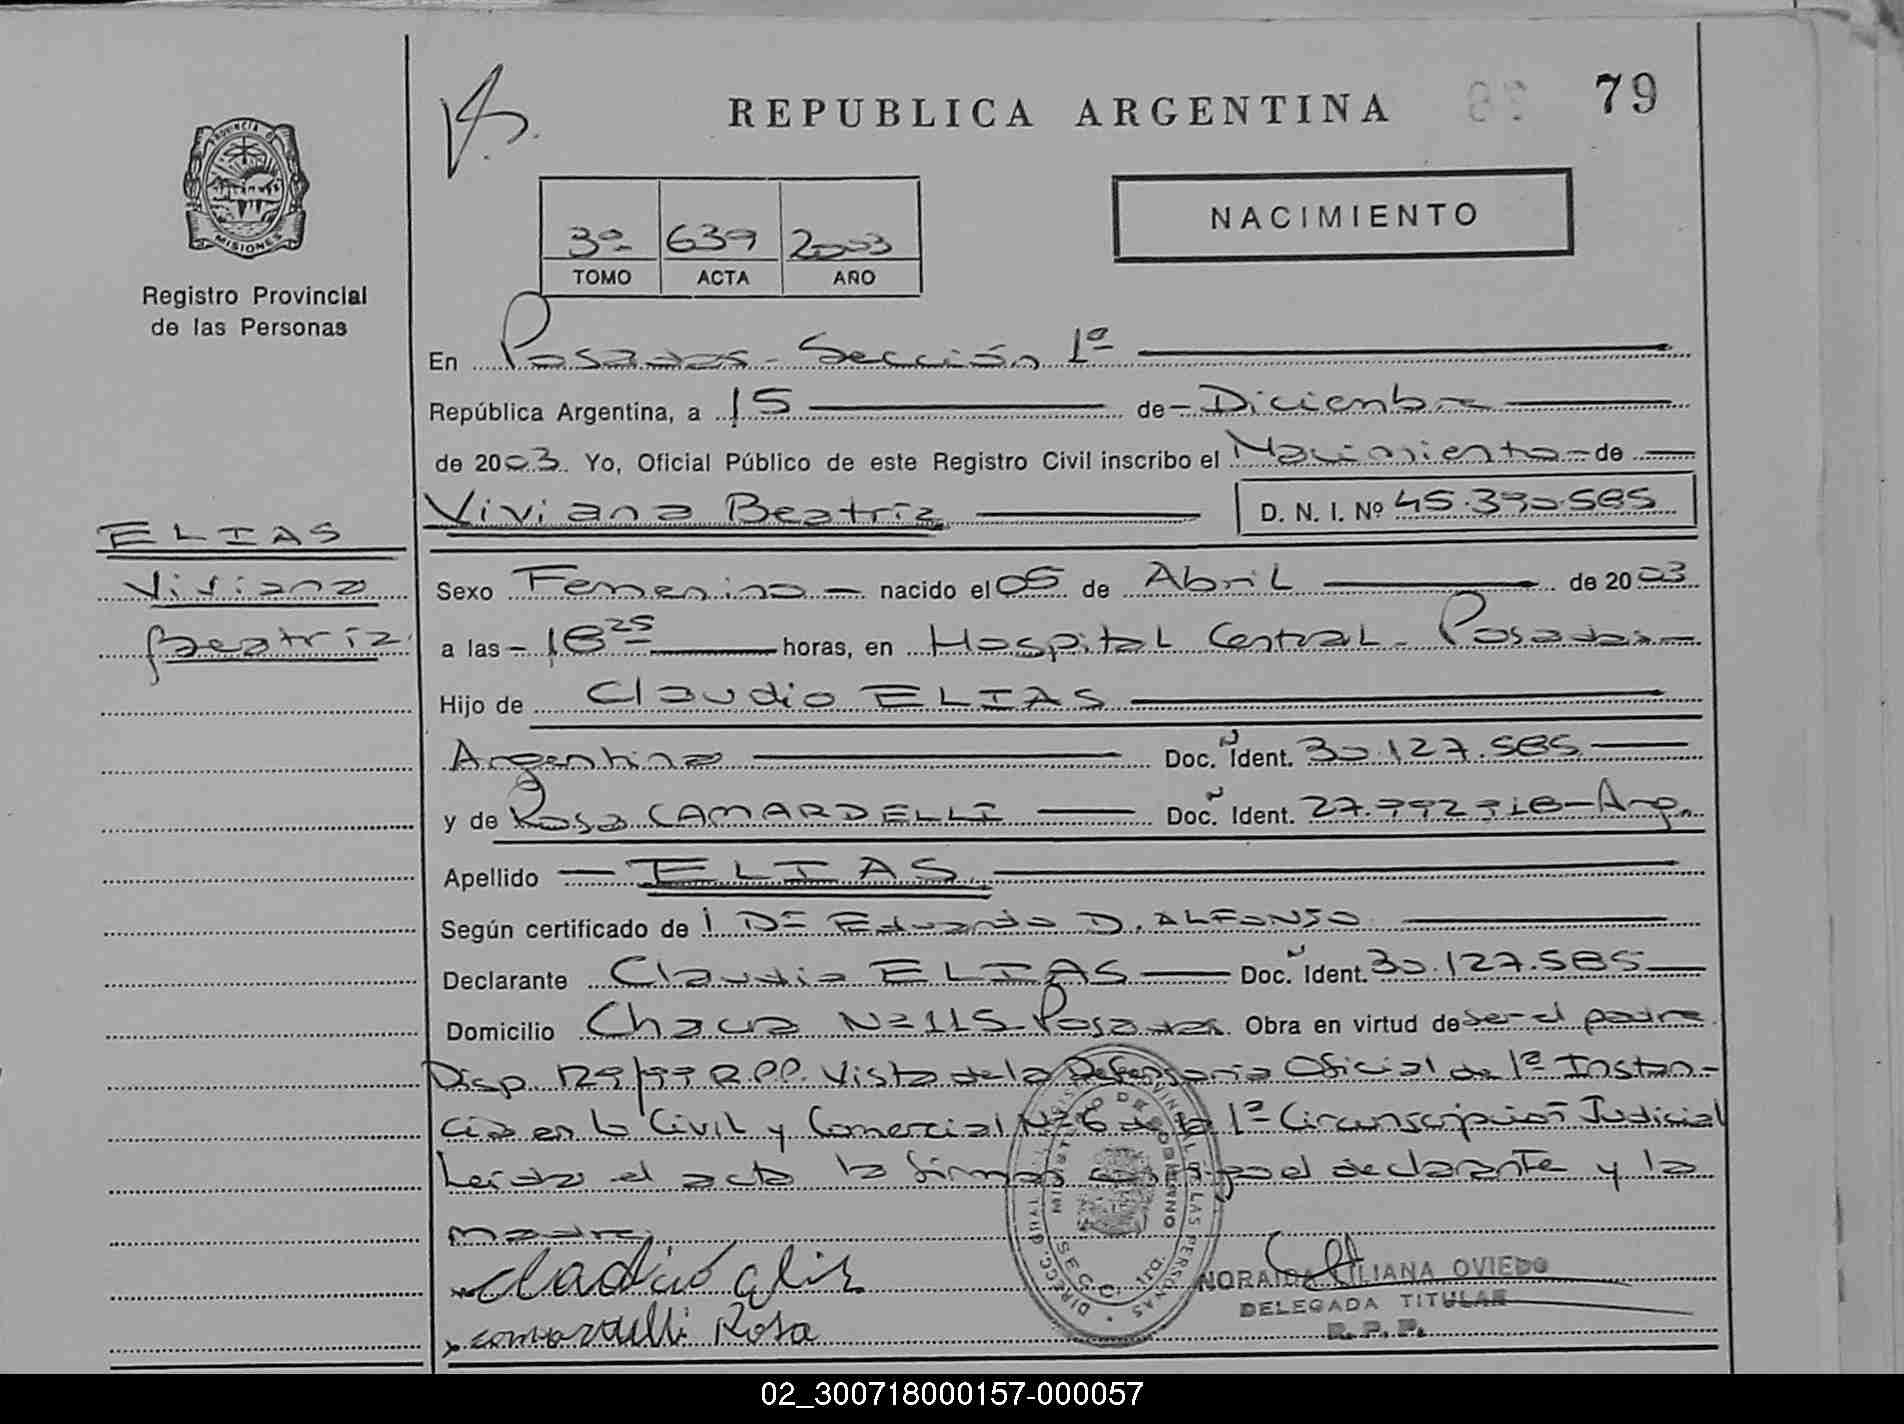 REPUBLICA ARGENTINA 79
PROVINCIA DE
MISIONES
Registro Provincial
de las Personas
NACIMIENTO
3º 639 2003
TOMO ACTA AÑO
En Posadas - Sección 1ª
República Argentina, a 15 de Diciembre
de 2003. Yo, Oficial Público de este Registro Civil inscribo el Nacimiento de
Viviana Beatriz D. N. I. Nº 45.390.585
ELIAS
Viviana
Beatriz
Sexo Femenino nacido el 05 de Abril de 2003
a las 18 25 horas, en Hospital Central - Posadas
Hijo de Claudio ELIAS
Argentino Doc. Ident. 30.127.585
y de Rosa CAMARDELLI Doc. Ident. 27.992.918 - Arg.
Apellido ELIAS
Según certificado de Eduardo D. ALFONSO
Declarante Claudio ELIAS Doc. Ident. 30.127.585
Domicilio Chacra Nº 115 - Posadas. Obra en virtud de ser el padre
Disp. 129/99 R.P.P. Vista de la Defensoria Oficial de 1ª Instan-
cia en lo Civil y Comercial Nº 6 de la 1ª Circunscripción Judicial
Leída el acta la firman el declarante y la
madre
Cladio Elis
Camardelli Rosa
NORAIDA LILIANA OVIEDO
DELEGADA TITULAR
R. P. P.
MINISTERIO DE GOBIERNO
02_300718000157-000057